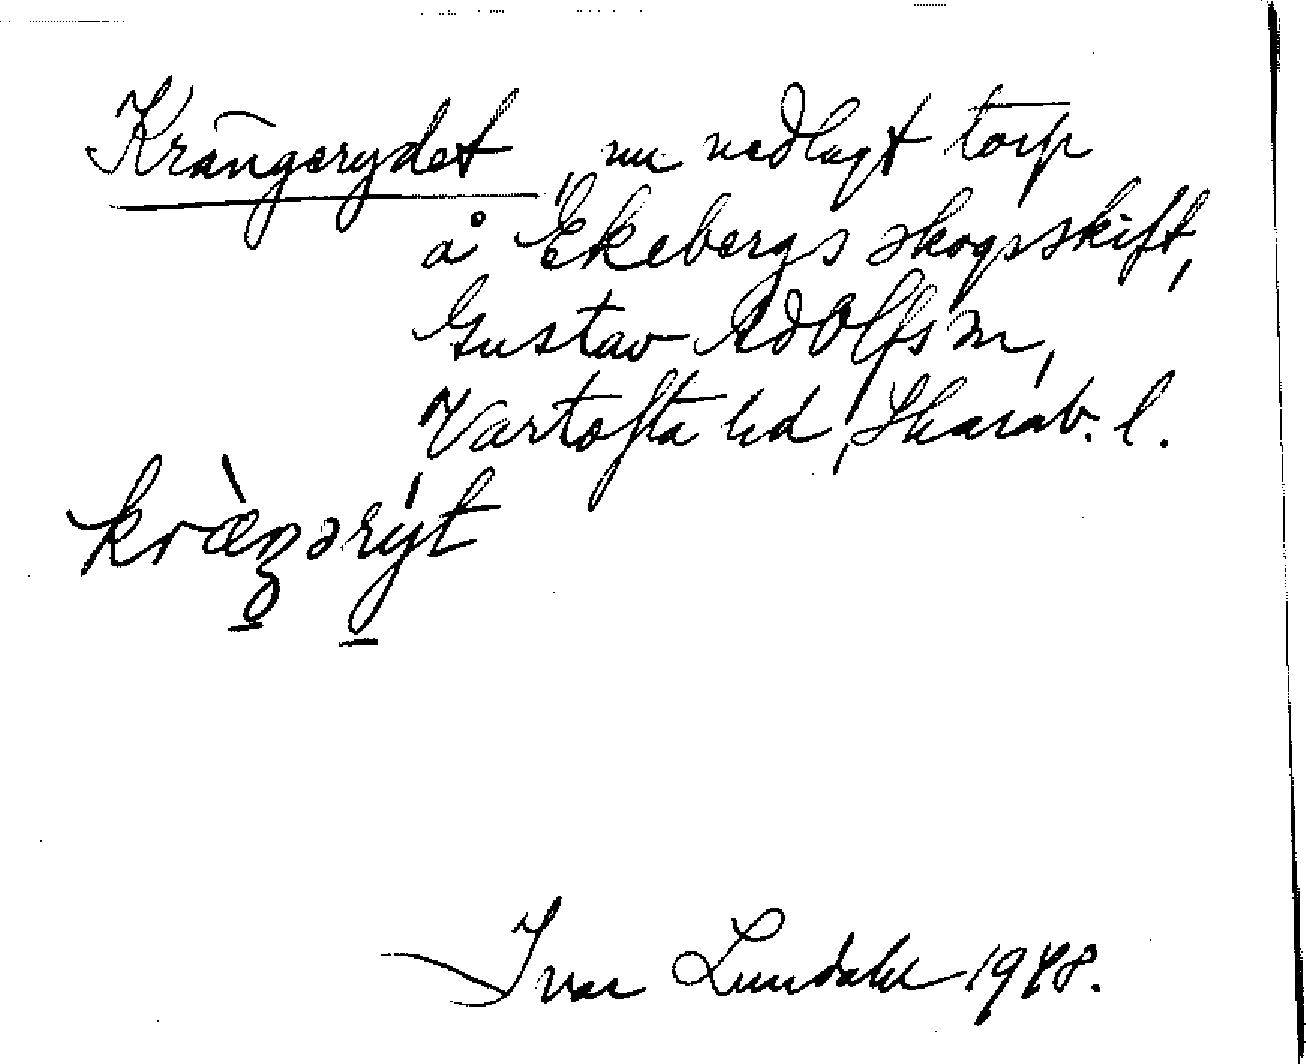 Krängerydet, nu nedlagt torp
å Ekebergs skogsskift,
Gustav Adolfs sn,
Vartofta hd, Skarab. l.
kræ̀ŋərýt
Ivar Lundahl 1948.